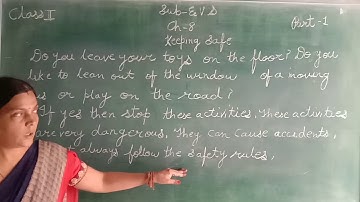 Class II Sub-E.V.S Part-1
Ch-8
Keeping Safe
Do you leave your toys on the floor? Do you
like to lean out of the window of a moving
or play on the road?
If yes then stop these activities. These activities
are very dangerous, They can cause accidents,
always follow the safety rules,